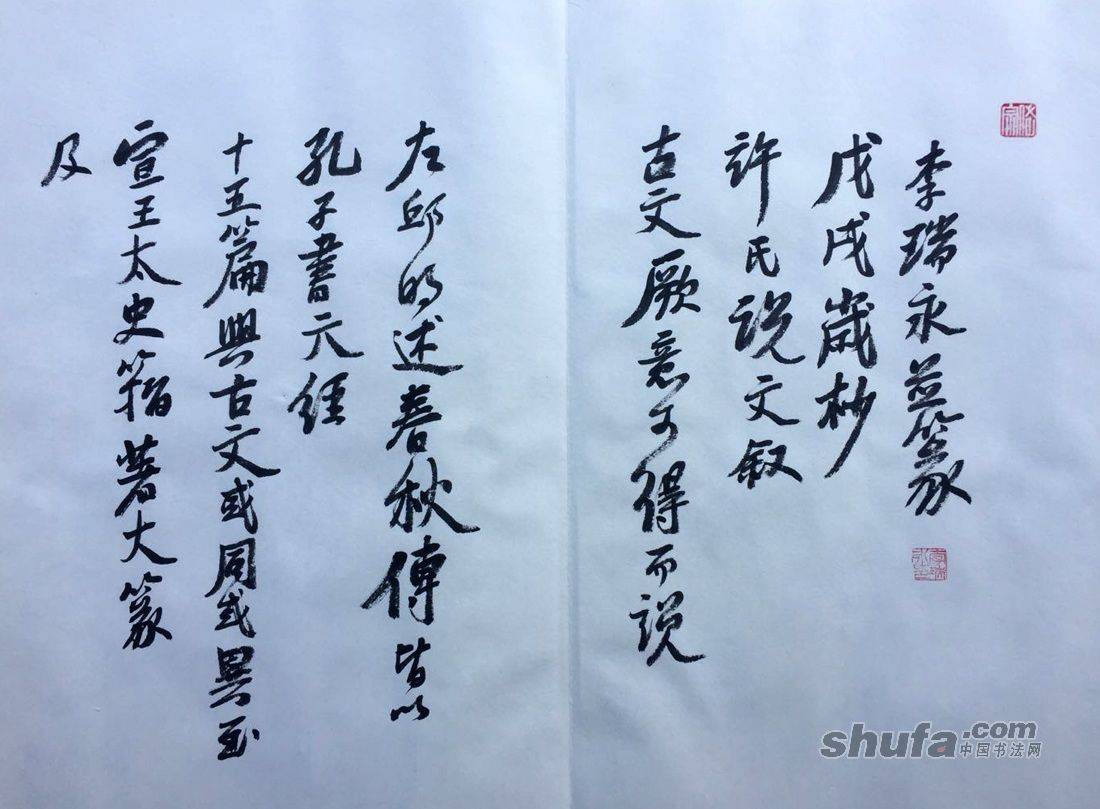 及
宣王太史籀著大篆
十五篇與古文或同或異至
孔子書六經
左邱明述春秋傳皆以
古文厥意可得而説
許氏説文叙
戊戌歲杪
李瑞永並篆
shufa.com
中国书法网